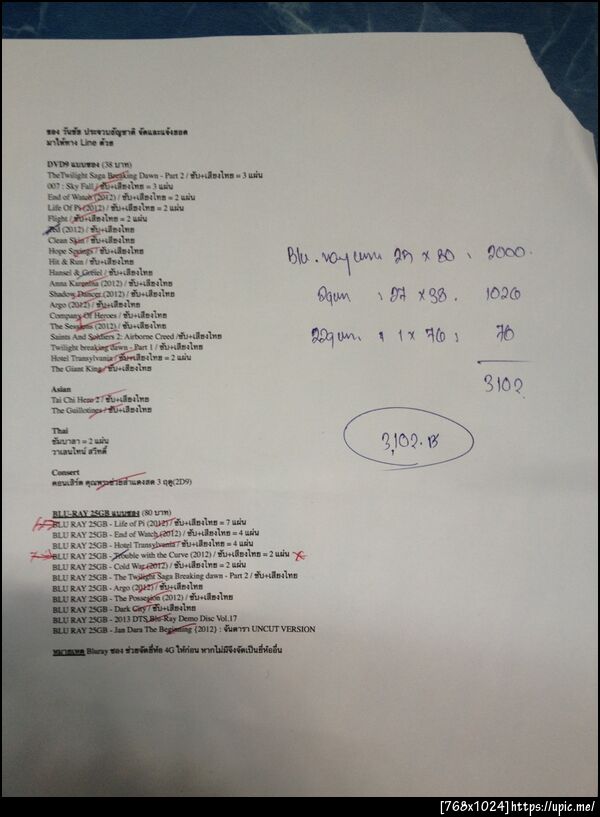 ของ วันชัย ประจวบสัญชาติ จัดและแจ้งยอด
มาให้ทาง Line ด้วย
DVD9 แบบซอง (38 บาท)
TheTwilight Saga Breaking Dawn - Part 2 / ซับ+เสียงไทย = 3 แผ่น
007 : Sky Fall / ซับ+เสียงไทย = 3 แผ่น
End of Watch (2012) / ซับ+เสียงไทย = 2 แผ่น
Life Of Pi (2012) / ซับ+เสียงไทย = 2 แผ่น
Flight / ซับ+เสียงไทย = 2 แผ่น
Ted (2012) / ซับ+เสียงไทย
Clean Skin / ซับ+เสียงไทย
Hope Springs / ซับ+เสียงไทย
Hit & Run / ซับ+เสียงไทย
Hansel & Gretel / ซับ+เสียงไทย
Anna Karenina (2012) / ซับ+เสียงไทย
Shadow Dancer (2012) / ซับ+เสียงไทย
Argo (2012) / ซับ+เสียงไทย
Company Of Heroes / ซับ+เสียงไทย
The Sessions (2012) / ซับ+เสียงไทย
Saints And Soldiers 2: Airborne Creed /ซับ+เสียงไทย
Twilight breaking dawn - Part 1 / ซับ+เสียงไทย
Hotel Transylvania / ซับ+เสียงไทย = 2 แผ่น
The Giant King / ซับ+เสียงไทย
Asian
Tai Chi Hero 2 / ซับ+เสียงไทย
The Guillotines / ซับ+เสียงไทย
Thai
ชัมบาลา = 2 แผ่น
วาเลนไทน์ สวีทตี้
Consert
คอนเสิร์ต คุณพระช่วยสำแดงสด 3 ฤดู(2D9)
BLU-RAY 25GB แบบซอง (80 บาท)
BLU RAY 25GB - Life of Pi (2012) / ซับ+เสียงไทย = 7 แผ่น
BLU RAY 25GB - End of Watch (2012) / ซับ+เสียงไทย = 4 แผ่น
BLU RAY 25GB - Hotel Transylvania / ซับ+เสียงไทย = 4 แผ่น
BLU RAY 25GB - Trouble with the Curve (2012) / ซับ+เสียงไทย = 2 แผ่น
BLU RAY 25GB - Cold War (2012) / ซับ+เสียงไทย = 2 แผ่น
BLU RAY 25GB - The Twilight Saga Breaking dawn - Part 2 / ซับ+เสียงไทย
BLU RAY 25GB - Argo (2012) / ซับ+เสียงไทย
BLU RAY 25GB - The Possesion (2012) / ซับ+เสียงไทย
BLU RAY 25GB - Dark City / ซับ+เสียงไทย
BLU RAY 25GB - 2013 DTS Blu-Ray Demo Disc Vol.17
BLU RAY 25GB - Jan Dara The Beginning {2012} : จันดารา UNCUT VERSION
หมายเหตุ Bluray ซอง ช่วยจัดยี่ห้อ 4G ให้ก่อน หากไม่มีจึงจัดเป็นยี่ห้ออื่น
Blu.ray × 80 : 2000.
: 27 × 38. 1026
1 × 76 : 76
3102
3,102.B
[768x1024]https://upic.me/